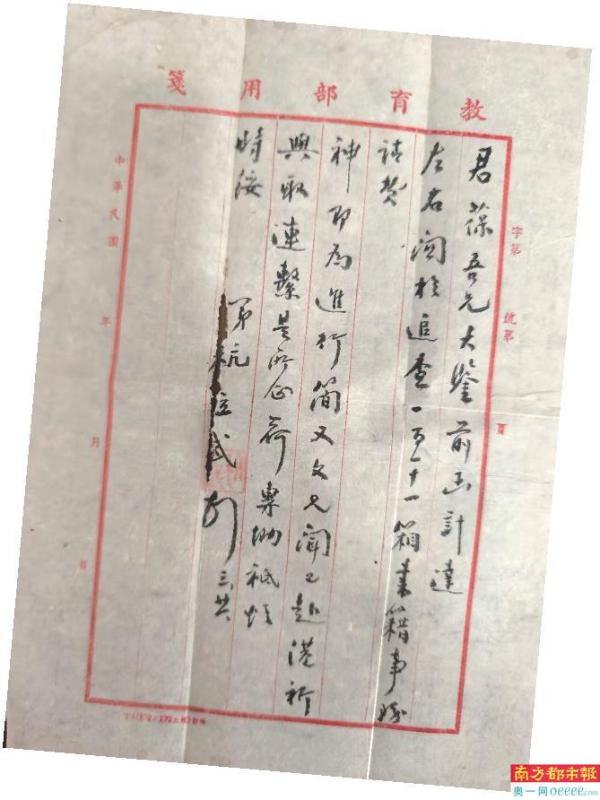 教育部用箋
字第 號第 頁
君葆吾兄大鑒前函計達
左右關於追查一百十一箱書籍事務
請費
神即為進行簡又文兄聞已赴港祈
與取連繫是所企荷專此祗頌
時綏
弟杭立武
中華民國 年 月 日
南方都市報
奥一网oeeee.com